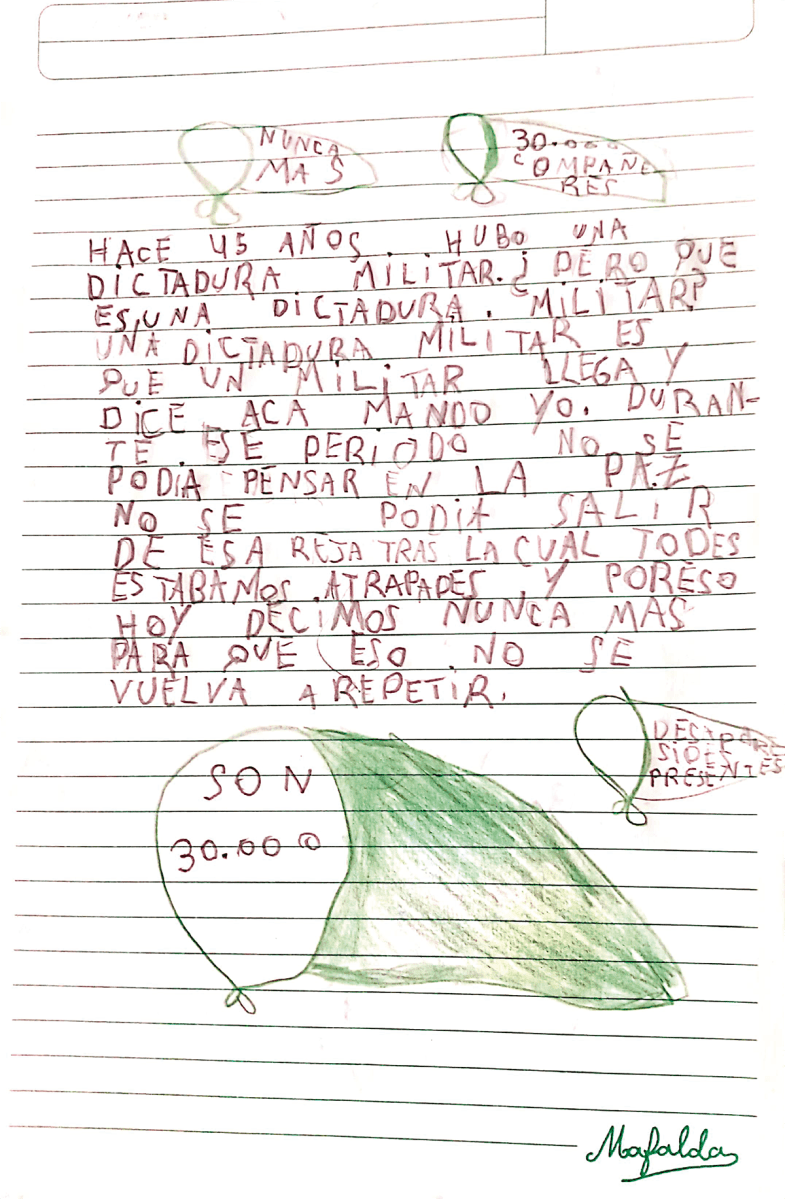 NUNCA
MAS
30.000
COMPAÑE
RES
HACE 45 AÑOS. HUBO UNA
DICTADURA MILITAR. ¿PERO QUE
ES UNA DICTADURA. MILITAR?
UNA DICTADURA MILITAR ES
QUE UN MILITAR LLEGA Y
DICE ACA MANDO YO. DURAN-
TE ESE PERIODO NO SE
PODIA PENSAR EN LA PAZ
NO SE PODIA SALIR
DE ESA REJA TRAS LA CUAL TODES
ESTABAMOS ATRAPADES Y PORESO
HOY DECIMOS NUNCA MAS
PARA QUE ESO NO SE
VUELVA A REPETIR.
DESAPARE
SIDES
PRESENTES
SON
30.000
Mafalda